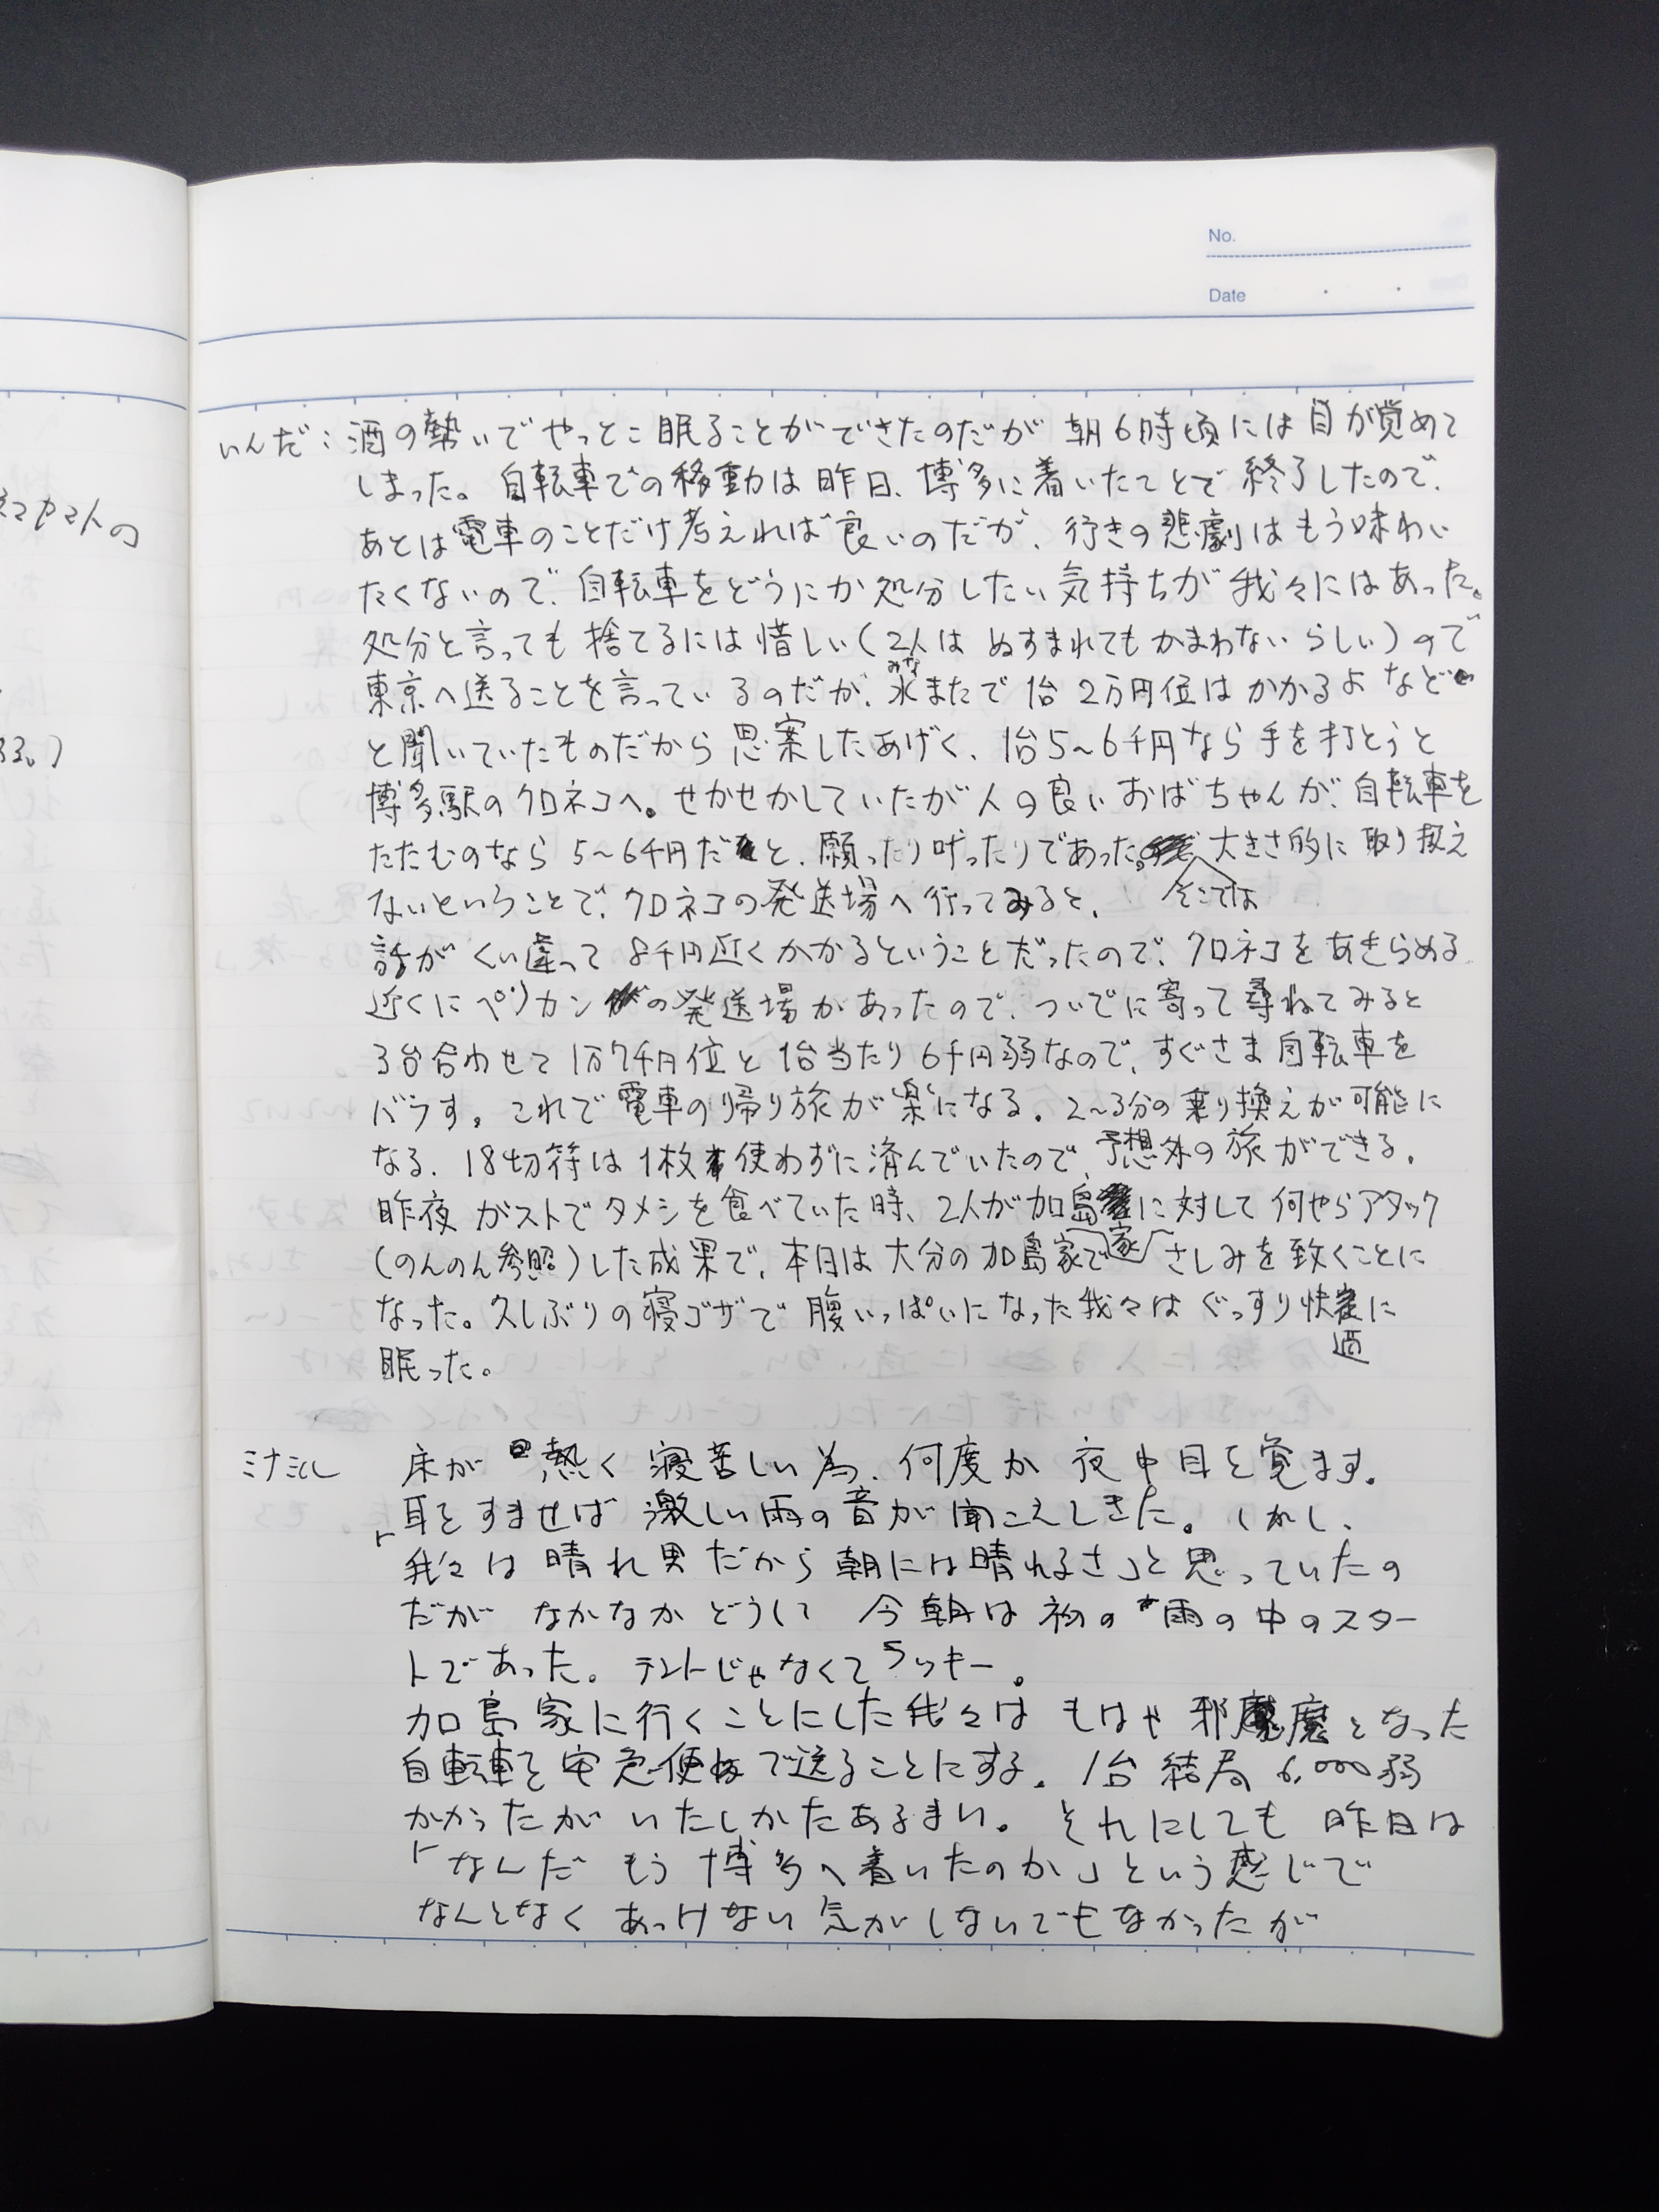 No.
Date
いんだ：酒の勢いでやっとこ眠ることができたのだが朝6時頃には目が覚めて
しまった。自転車での移動は昨日、博多に着いたことで終了したので、
あとは電車のことだけ考えれば良いのだが、行きの悲劇はもう味わい
たくないので、自転車をどうにか処分したい気持ちが我々にはあった。
処分と言っても捨てるには惜しい(2人はぬすまれてもかまわないらしい)ので
東京へ送ることを言っているのだが、水またで1台2万円位はかかるよなど
みな
と聞いていたものだから思案したあげく、1台5〜6千円なら手を打とうと
博多駅のクロネコへ。せかせかしていたが人の良いおばちゃんが、自転車を
たたむのなら5〜6千円だと、願ったり叶ったりであった。大きさ的に取り扱え
ないということで、クロネコの発送場へ行ってみると、そこでは
話がくい違って8千円近くかかるということだったので、クロネコをあきらめる
近くにペリカンの発送場があったので、ついでに寄って尋ねてみると
3台合わせて1万7千円位と1台当たり6千円弱なので、すぐさま自転車を
バラす。これで電車の帰り旅が楽になる。2〜3分の乗り換えが可能に
なる。18切符は1枚使わずに済んでいたので、予想外の旅ができる。
昨夜ガストでタメシを食べていた時、2人が加島家に対して何やらアタック
(のんのん参照)した成果で、本日は大分の加島家でさしみを致くことに
なった。久しぶりの寝ゴザで腹いっぱいになった我々はぐっすり快適に
眠った。
ミナミし 床が熱く寝苦しい為、何度か夜中目を覚ます。
耳をすませば激しい雨の音が聞こえしきた。しかし、
「我々は晴れ男だから朝には晴れるさ」と思っていたの
だがなかなかどうして今朝は初の雨の中のスター
トであった。テントじゃなくてラッキー。
加島家に行くことにした我々はもはや邪魔となった
自転車を宅急便で送ることにする。1台結局6,000弱
かかったがいたしかたあるまい。それにしても昨日は
「なんだもう博多へ着いたのか」という感じで
なんとなくあっけない気がしないでもなかったが